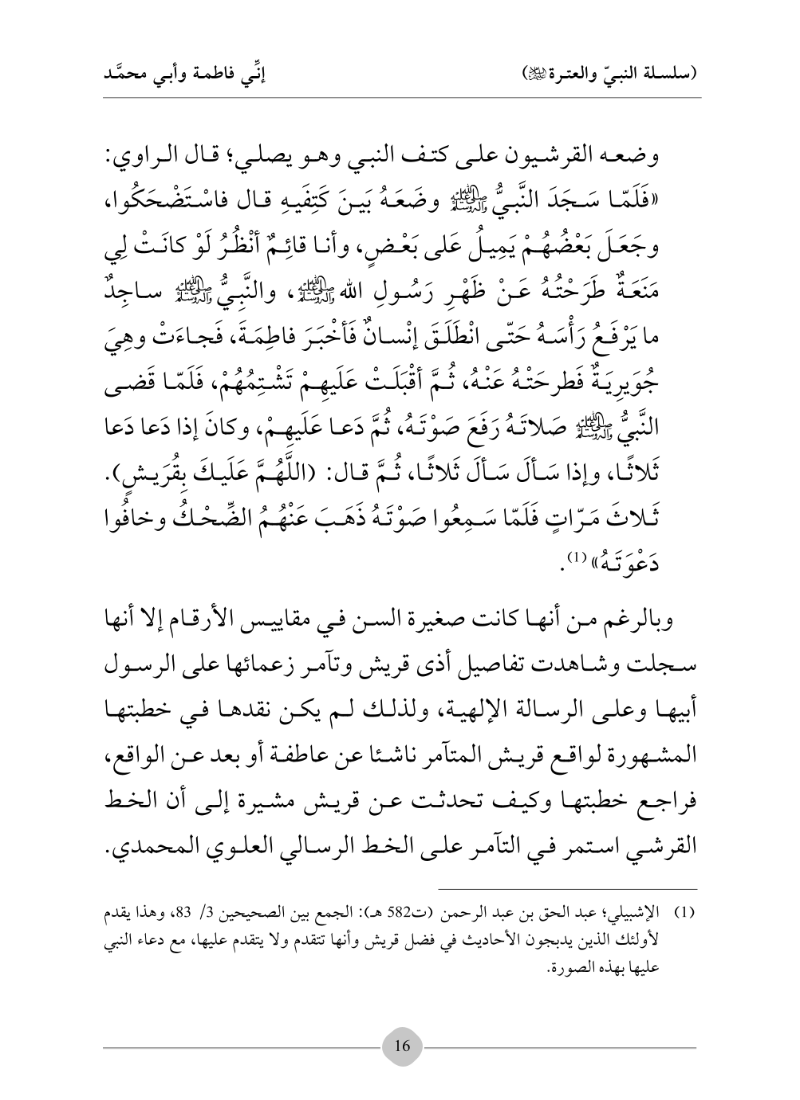 (سلسلة النبيّ والعترة ﷺ) إنِّي فاطمة وأبي محمَّد
وضعه القرشيون على كتف النبي وهو يصلي؛ قال الراوي:
«فَلَمّا سَجَدَ النَّبيُّ ﷺ وضَعَهُ بَينَ كَتِفَيهِ قال فاسْتَضْحَكُوا،
وجَعَلَ بَعْضُهُمْ يَمِيلُ عَلى بَعْضٍ، وأنا قائِمٌ أنْظُرُ لَوْ كانَتْ لِي
مَنَعَةٌ طَرَحْتُهُ عَنْ ظَهْرِ رَسُولِ الله ﷺ، والنَّبِيُّ ﷺ ساجِدٌ
ما يَرْفَعُ رَأْسَهُ حَتّى انْطَلَقَ إنْسانٌ فَأخْبَرَ فاطِمَةَ، فَجاءَتْ وهِيَ
جُوَيرِيَةٌ فَطرحَتْهُ عَنْهُ، ثُمَّ أقْبَلَتْ عَلَيهِمْ تَشْتِمُهُمْ، فَلَمّا قَضى
النَّبيُّ ﷺ صَلاتَهُ رَفَعَ صَوْتَهُ، ثُمَّ دَعا عَلَيهِمْ، وكانَ إذا دَعا دَعا
ثَلاثًا، وإذا سَألَ سَألَ ثَلاثًا، ثُمَّ قال: (اللَّهُمَّ عَلَيكَ بِقُرَيشٍ).
ثَلاثَ مَرّاتٍ فَلَمّا سَمِعُوا صَوْتَهُ ذَهَبَ عَنْهُمُ الضِّحْكُ وخافُوا
دَعْوَتَهُ» (1).
وبالرغم من أنها كانت صغيرة السن في مقاييس الأرقام إلا أنها
سجلت وشاهدت تفاصيل أذى قريش وتآمر زعمائها على الرسول
أبيها وعلى الرسالة الإلهية، ولذلك لم يكن نقدها في خطبتها
المشهورة لواقع قريش المتآمر ناشئا عن عاطفة أو بعد عن الواقع،
فراجع خطبتها وكيف تحدثت عن قريش مشيرة إلى أن الخط
القرشي استمر في التآمر على الخط الرسالي العلوي المحمدي.
(1) الإشبيلي؛ عبد الحق بن عبد الرحمن (ت582 هـ): الجمع بين الصحيحين 3/ 83، وهذا يقدم
لأولئك الذين يدبجون الأحاديث في فضل قريش وأنها تتقدم ولا يتقدم عليها، مع دعاء النبي
عليها بهذه الصورة.
16